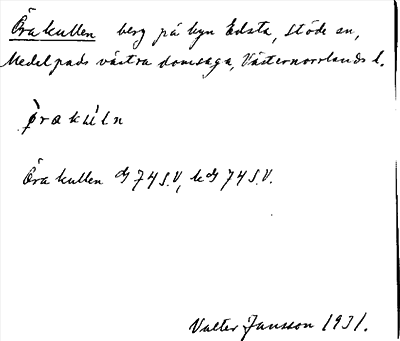 Örakullen berg på byn Edsta, Stöde sn,
Medelpads västra domsaga, Västernorrlands l.
ờrakùln
Örakullen G 74 S.V, kG 74 S.V.
Valter Jansson 1931.